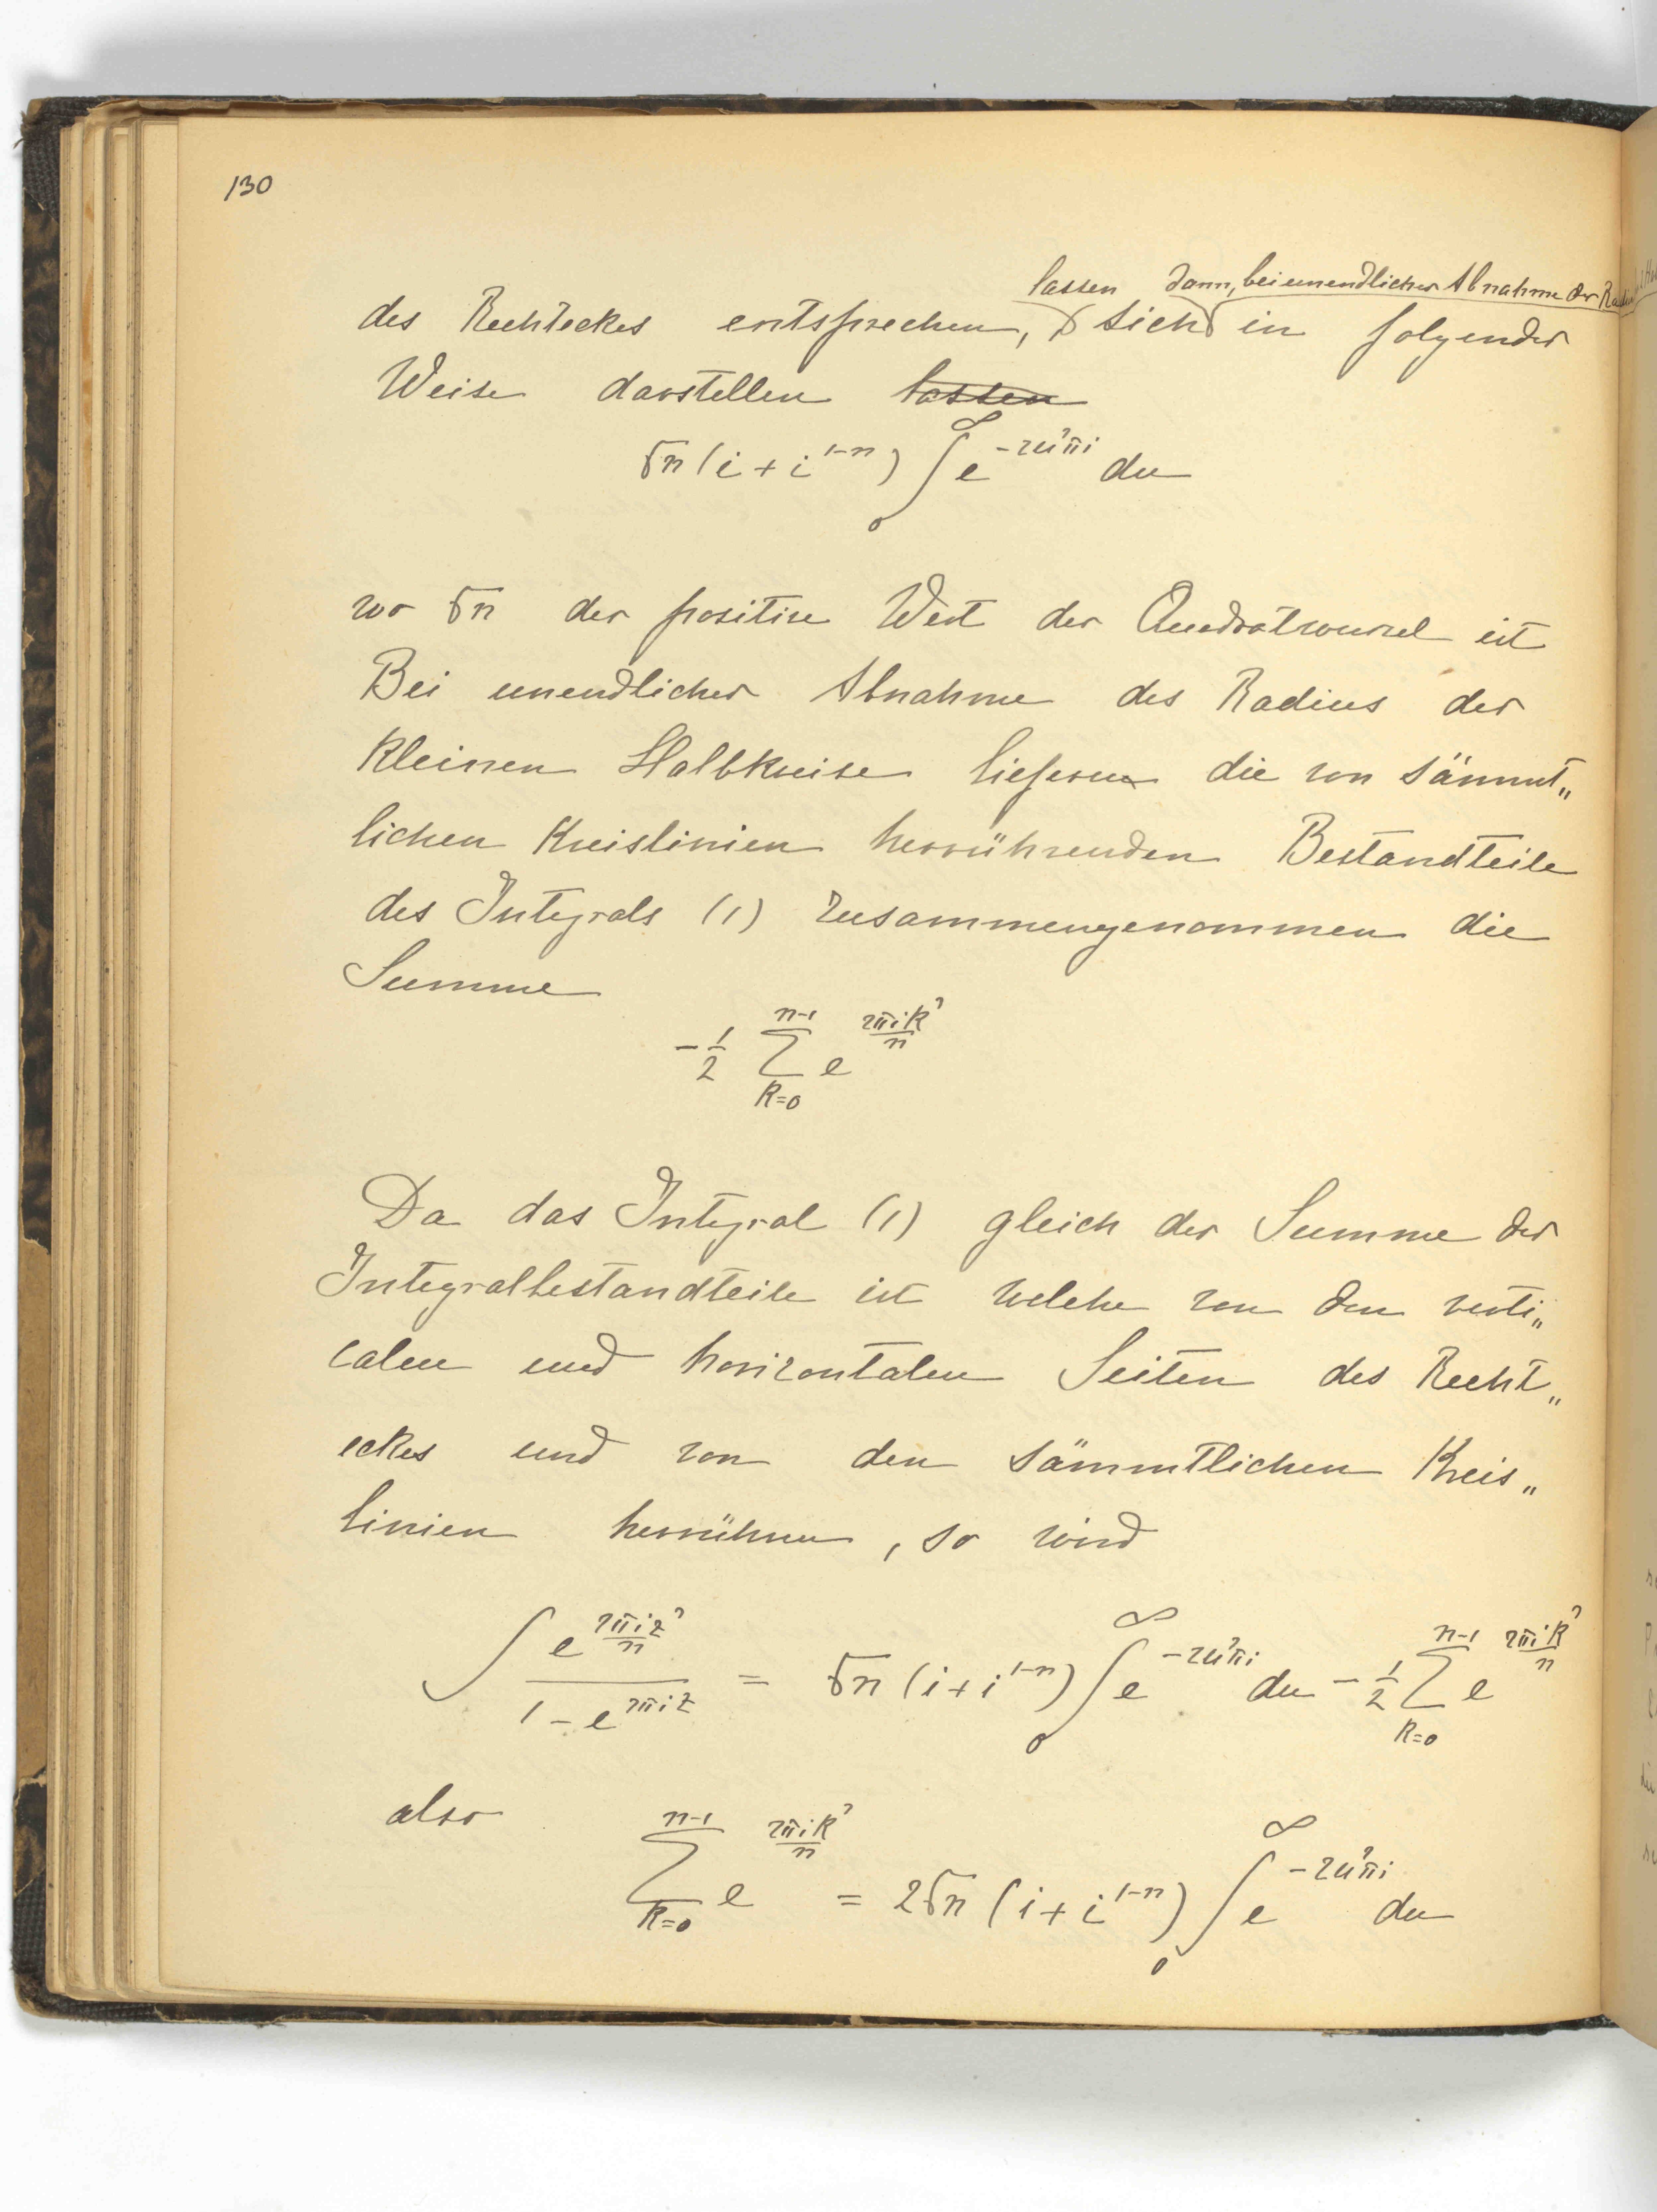 130
lassen dann, bei unendlicher Abnahme der Radien
des Rechteckes entsprechen, sich in folgender
Weise darstellen lassen
√n (i + i^{1-n}) ∫_0^∞ e^{-2u²πi} du
wo √n der positive Wert der Quadratwurzel ist
Bei unendlicher Abnahme des Radius der
kleinen Halbkreise liefern die von sämmt„
lichen Kreislinien herrührenden Bestandteile
des Integrals (1) zusammengenommen die
Summe
-1/2 ∑_{k=0}^{n-1} e^{2πik²/n}
Da das Integral (1) gleich der Summe der
Integralbestandteile ist welche von den verti„
calen und horizontalen Seiten des Recht„
eckes und von den sämmtlichen Kreis„
linien herrühren, so wird
∫ e^{2πiz²/n} / (1 - e^{2πiz}) = √n (i + i^{1-n}) ∫_0^∞ e^{-2u²πi} du - 1/2 ∑_{k=0}^{n-1} e^{2πik²/n}
also
∑_{k=0}^{n-1} e^{2πik²/n} = 2√n (i + i^{1-n}) ∫_0^∞ e^{-2u²πi} du